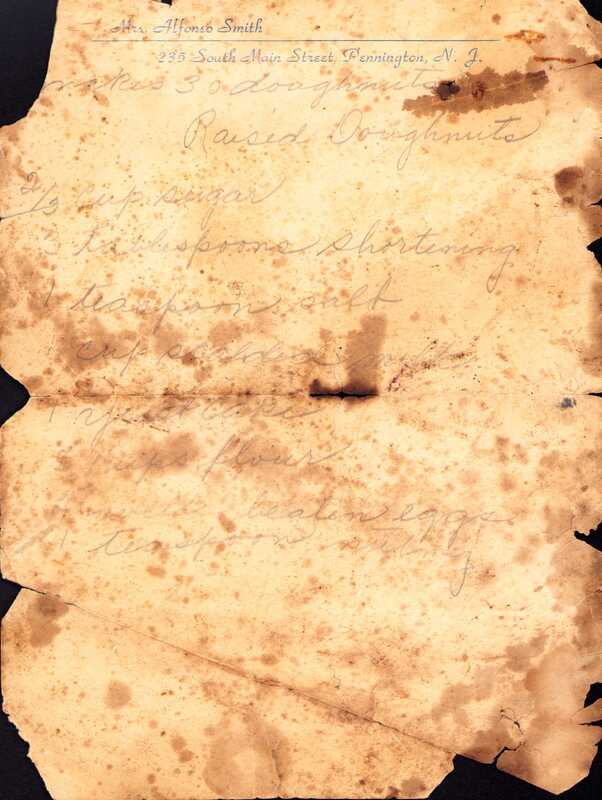 Mrs. Alfonso Smith
235 South Main Street, Pennington, N. J.
makes 30 doughnuts
Raised Doughnuts
2/3 cup sugar
tablespoons shortening
1 teaspoon salt
1 cup scalded milk
1 yeast cake
cups flour
well beaten eggs
1 teaspoon nutmeg